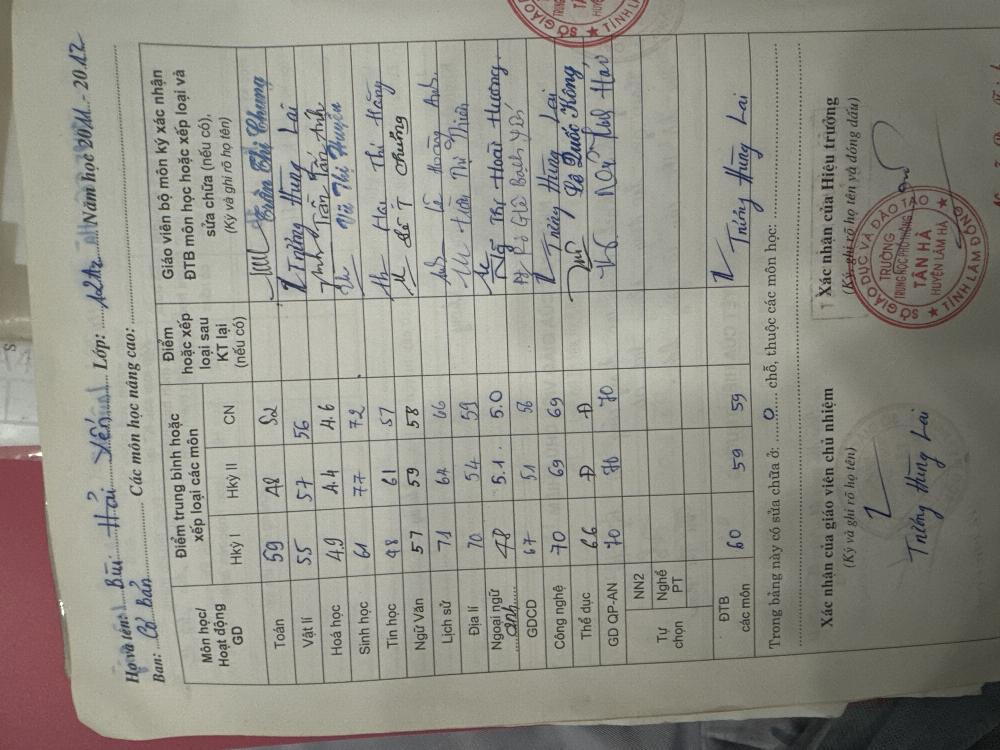 Họ và tên: Bùi Hải Yến Lớp: 12A12 Năm học 2011 - 2012
Ban: Cơ Bản Các môn học nâng cao:
Môn học/ Hoạt động GD | Điểm trung bình hoặc xếp loại các môn | Điểm hoặc xếp loại sau KT lại (nếu có) | Giáo viên bộ môn ký xác nhận ĐTB môn học hoặc xếp loại và sửa chữa (nếu có), (Ký và ghi rõ họ tên)
Hkỳ I | Hkỳ II | CN
Toán 59 48 52 Trần Thị Chung
Vật lí 55 57 56 Trương Hùng Lai
Hoá học 4.9 4.4 4.6 Trần Tấn Anh
Sinh học 61 77 72 Vũ Thị Huyền
Tin học 48 61 57 Hai Thi Hằng
Ngữ Văn 57 59 58 Chưởng
Lịch sử 71 64 66 Lê Hoàng Anh
Địa lí 70 54 59 Trần Thị Niên
Ngoại ngữ Anh 48 5.1 5.0 Thị Hoài Hương
GDCD 67 51 56 Bạch Yến
Công nghệ 70 69 69 Trương Hùng Lai
Thể dục 66 Đ Đ Lê Quốc Công
GD QP-AN 70 70 70
Tự chọn NN2
Nghề PT
ĐTB các môn 60 59 59 Trương Hùng Lai
Trong bảng này có sửa chữa ở: 0 chỗ, thuộc các môn học:
Xác nhận của giáo viên chủ nhiệm
(Ký và ghi rõ họ tên)
Trương Hùng Lai
Xác nhận của Hiệu trưởng
(Ký, ghi rõ họ tên và đóng dấu)
SỞ GIÁO DỤC VÀ ĐÀO TẠO
TRƯỜNG
TRUNG HỌC PHỔ THÔNG
TÂN HÀ
HUYỆN LÂM HÀ
TỈNH LÂM ĐỒNG